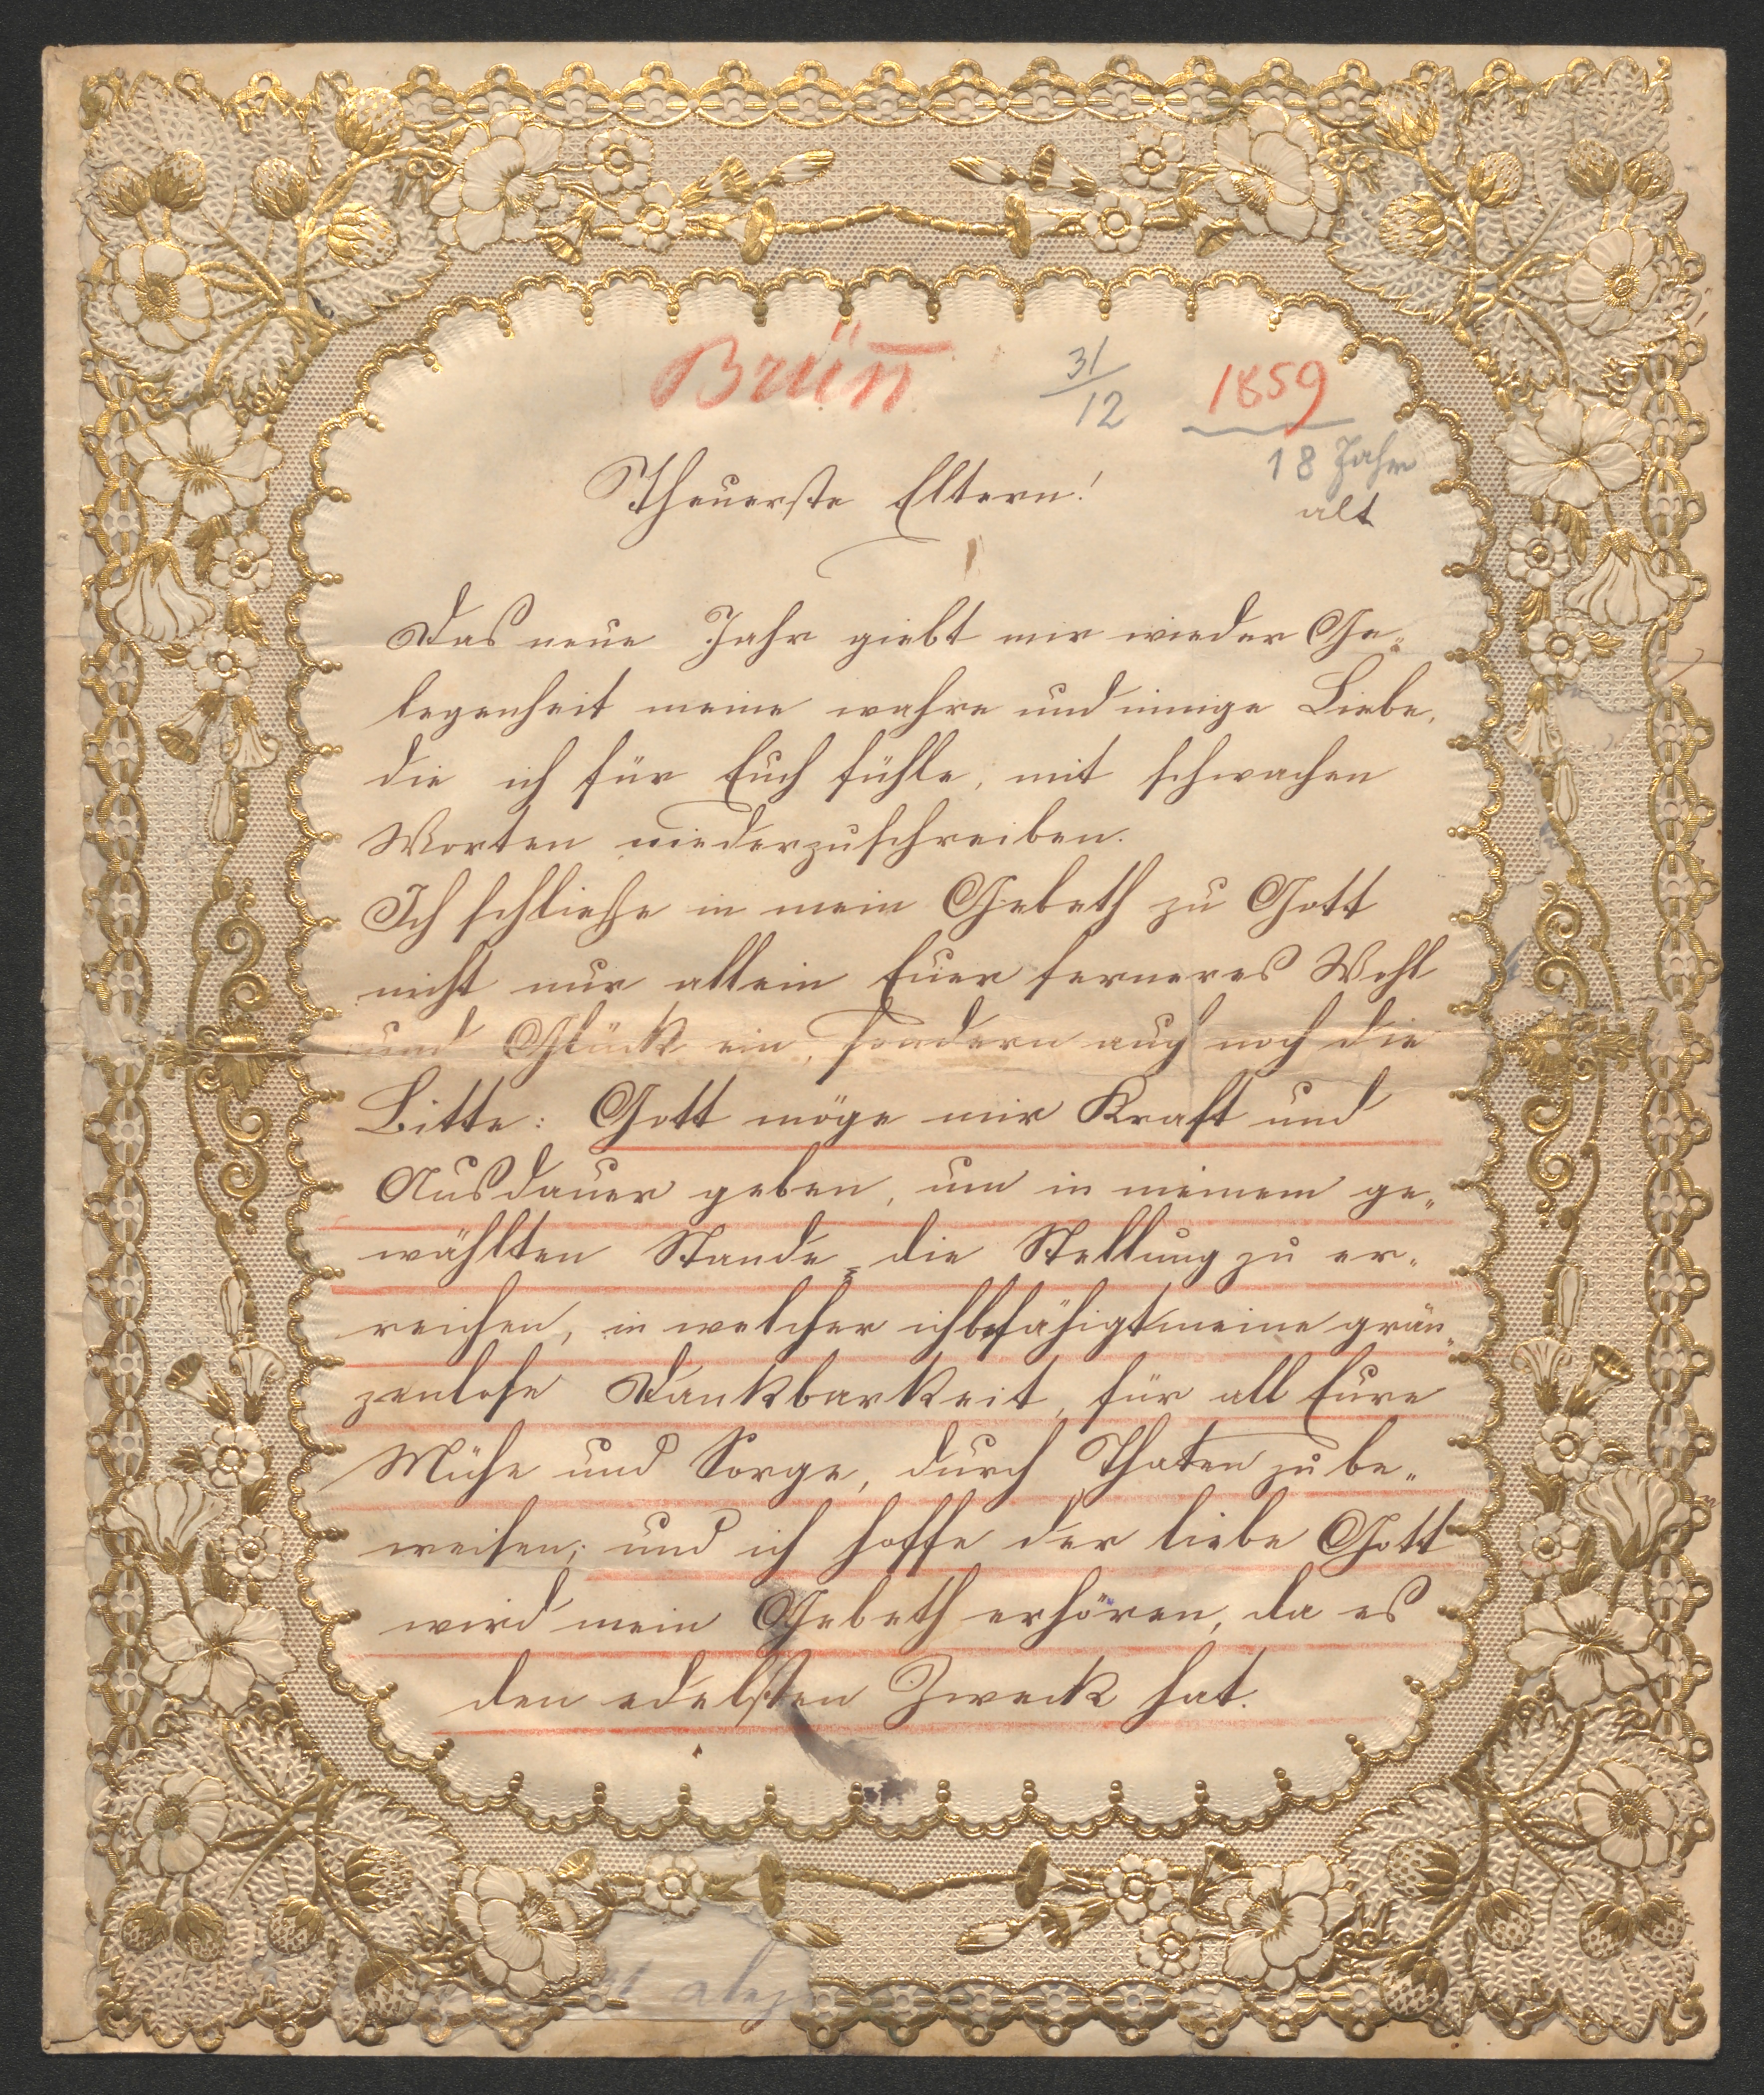 Brün̅
31/12
1859
18 Jahre
alt
Theuerste Eltern!
Das neue Jahr giebt mir wieder Ge„
legenheit meine wahre und innige Liebe,
die ich für Euch fühle, mit schwachen
Worten niederzuschreiben.
Ich schließe in mein Gebeth zu Gott
nicht nur allein Euer ferneres Wohl
und Glück ein, sondern auch noch die
Bitte: Gott möge mir Kraft und
Ausdauer geben, um in meinem ge„
wählten Stande die Stellung zu er„
reichen, in welcher ich befähigt meine grän„
zenlose Dankbarkeit, für all Eure
Mühe und Sorge, durch Thaten zu be„
weisen; und ich hoffe der liebe Gott
wird mein Gebeth erhören, da es
den edelsten Zweck hat.